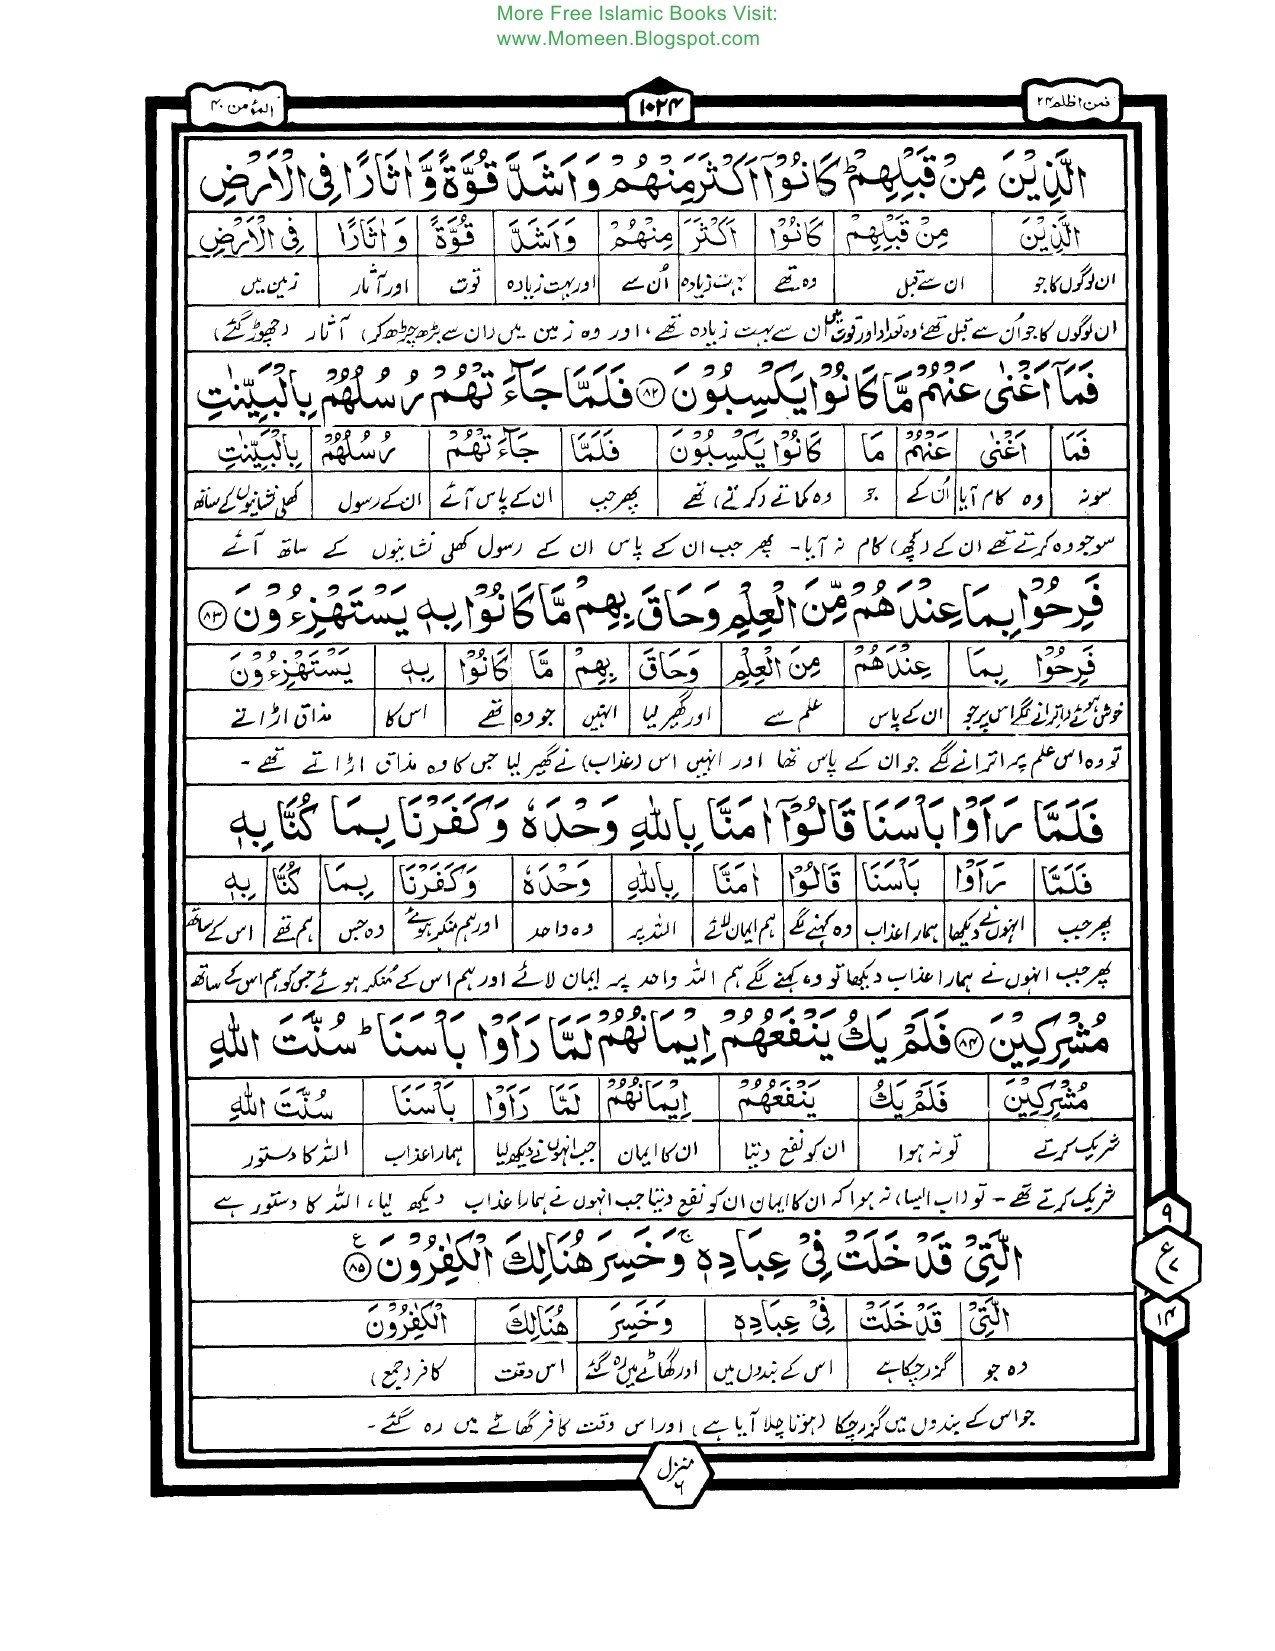 More Free Islamic Books Visit:
www.Momeen.Blogspot.com
فمن اظلم ۲۴
۱۰۲۴
المؤمن ۴۰
الَّذِيْنَ مِنْ قَبْلِهِمْ ؕ كَانُوْۤا اَكْثَرَ مِنْهُمْ وَ اَشَدَّ قُوَّةً وَّ اٰثَارًا فِي الْاَرْضِ
الَّذِيْنَ مِنْ قَبْلِهِمْ كَانُوْا اَكْثَرَ مِنْهُمْ وَاَشَدَّ قُوَّةً وَ اٰثَارًا فِي الْاَرْضِ
ان لوگوں کا جو ان سے قبل وہ تھے بہت زیادہ اُن سے اور بہت زیادہ قوت اور آثار زمین میں
ان لوگوں کا جو اُن سے قبل تھے؛ وہ تعداد اور قوت میں ان سے بہت زیادہ تھے، اور وہ زمین میں (ان سے بڑھ چڑھ کر) آثار (چھوڑ گئے)
فَمَاۤ اَغْنٰى عَنْهُمْ مَّا كَانُوْا يَكْسِبُوْنَ ﴿۸۲﴾ فَلَمَّا جَآءَتْهُمْ رُسُلُهُمْ بِالْبَيِّنٰتِ
فَمَا اَغْنٰى عَنْهُمْ مَا كَانُوْا يَكْسِبُوْنَ فَلَمَّا جَآءَتْهُمْ رُسُلُهُمْ بِالْبَيِّنٰتِ
سو نہ وہ کام آیا اُن کے جو وہ کماتے (کرتے) تھے پھر جب ان کے پاس آئے ان کے رسول کھلی نشانیوں کے ساتھ
سو جو وہ کرتے تھے ان کے (کچھ) کام نہ آیا۔ پھر جب ان کے پاس ان کے رسول کھلی نشانیوں کے ساتھ آئے
فَرِحُوْا بِمَا عِنْدَهُمْ مِّنَ الْعِلْمِ وَحَاقَ بِهِمْ مَّا كَانُوْا بِهٖ يَسْتَهْزِءُوْنَ ﴿۸۳﴾
فَرِحُوْا بِمَا عِنْدَهُمْ مِنَ الْعِلْمِ وَحَاقَ بِهِمْ مَّا كَانُوْا بِهٖ يَسْتَهْزِءُوْنَ
خوش ہوئے (اترانے لگے) اس پر جو ان کے پاس علم سے اور گھیر لیا انہیں جو وہ تھے اس کا مذاق اڑاتے
تو وہ اس علم پر اترانے لگے جو ان کے پاس تھا اور انہیں اس (عذاب) نے گھیر لیا جس کا وہ مذاق اڑاتے تھے۔
فَلَمَّا رَاَوْا بَاْسَنَا قَالُوْۤا اٰمَنَّا بِاللّٰهِ وَحْدَهٗ وَكَفَرْنَا بِمَا كُنَّا بِهٖ
فَلَمَّا رَاَوْا بَاْسَنَا قَالُوْا اٰمَنَّا بِاللّٰهِ وَحْدَهٗ وَكَفَرْنَا بِمَا كُنَّا بِهٖ
پھر جب انہوں نے دیکھا ہمارا عذاب وہ کہنے لگے ہم ایمان لائے اللہ پر وہ واحد اور ہم منکر ہوئے وہ جس ہم تھے اس کے ساتھ
پھر جب انہوں نے ہمارا عذاب دیکھا تو وہ کہنے لگے ہم اللہ واحد پر ایمان لائے اور ہم اس کے مُنکر ہوئے جس کو ہم اس کے ساتھ
مُشْرِكِيْنَ ﴿۸۴﴾ فَلَمْ يَكُ يَنْفَعُهُمْ اِيْمَانُهُمْ لَمَّا رَاَوْا بَاْسَنَا ؕ سُنَّتَ اللّٰهِ
مُشْرِكِيْنَ فَلَمْ يَكُ يَنْفَعُهُمْ اِيْمَانُهُمْ لَمَّا رَاَوْا بَاْسَنَا سُنَّتَ اللّٰهِ
شریک کرتے تو نہ ہوا ان کو نفع دیتا ان کا ایمان جب انہوں نے دیکھ لیا ہمارا عذاب اللہ کا دستور
شریک کرتے تھے۔ تو (اب ایسا) نہ ہوا کہ ان کا ایمان ان کو نفع دیتا جب انہوں نے ہمارا عذاب دیکھ لیا، اللہ کا دستور ہے
الَّتِيْ قَدْ خَلَتْ فِيْ عِبَادِهٖ ۚ وَخَسِرَ هُنَالِكَ الْكٰفِرُوْنَ ﴿۸۵﴾ ع
۹
ع
۷
۱۴
الَّتِيْ قَدْ خَلَتْ فِيْ عِبَادِهٖ وَخَسِرَ هُنَالِكَ الْكٰفِرُوْنَ
وہ جو گزر چکا ہے اس کے بندوں میں اور گھاٹے میں رہ گئے اس وقت کافر (جمع)
جو اس کے بندوں میں گزر چکا (ہوتا چلا آیا ہے) اور اس وقت کافر گھاٹے میں رہ گئے۔
منزل
۶